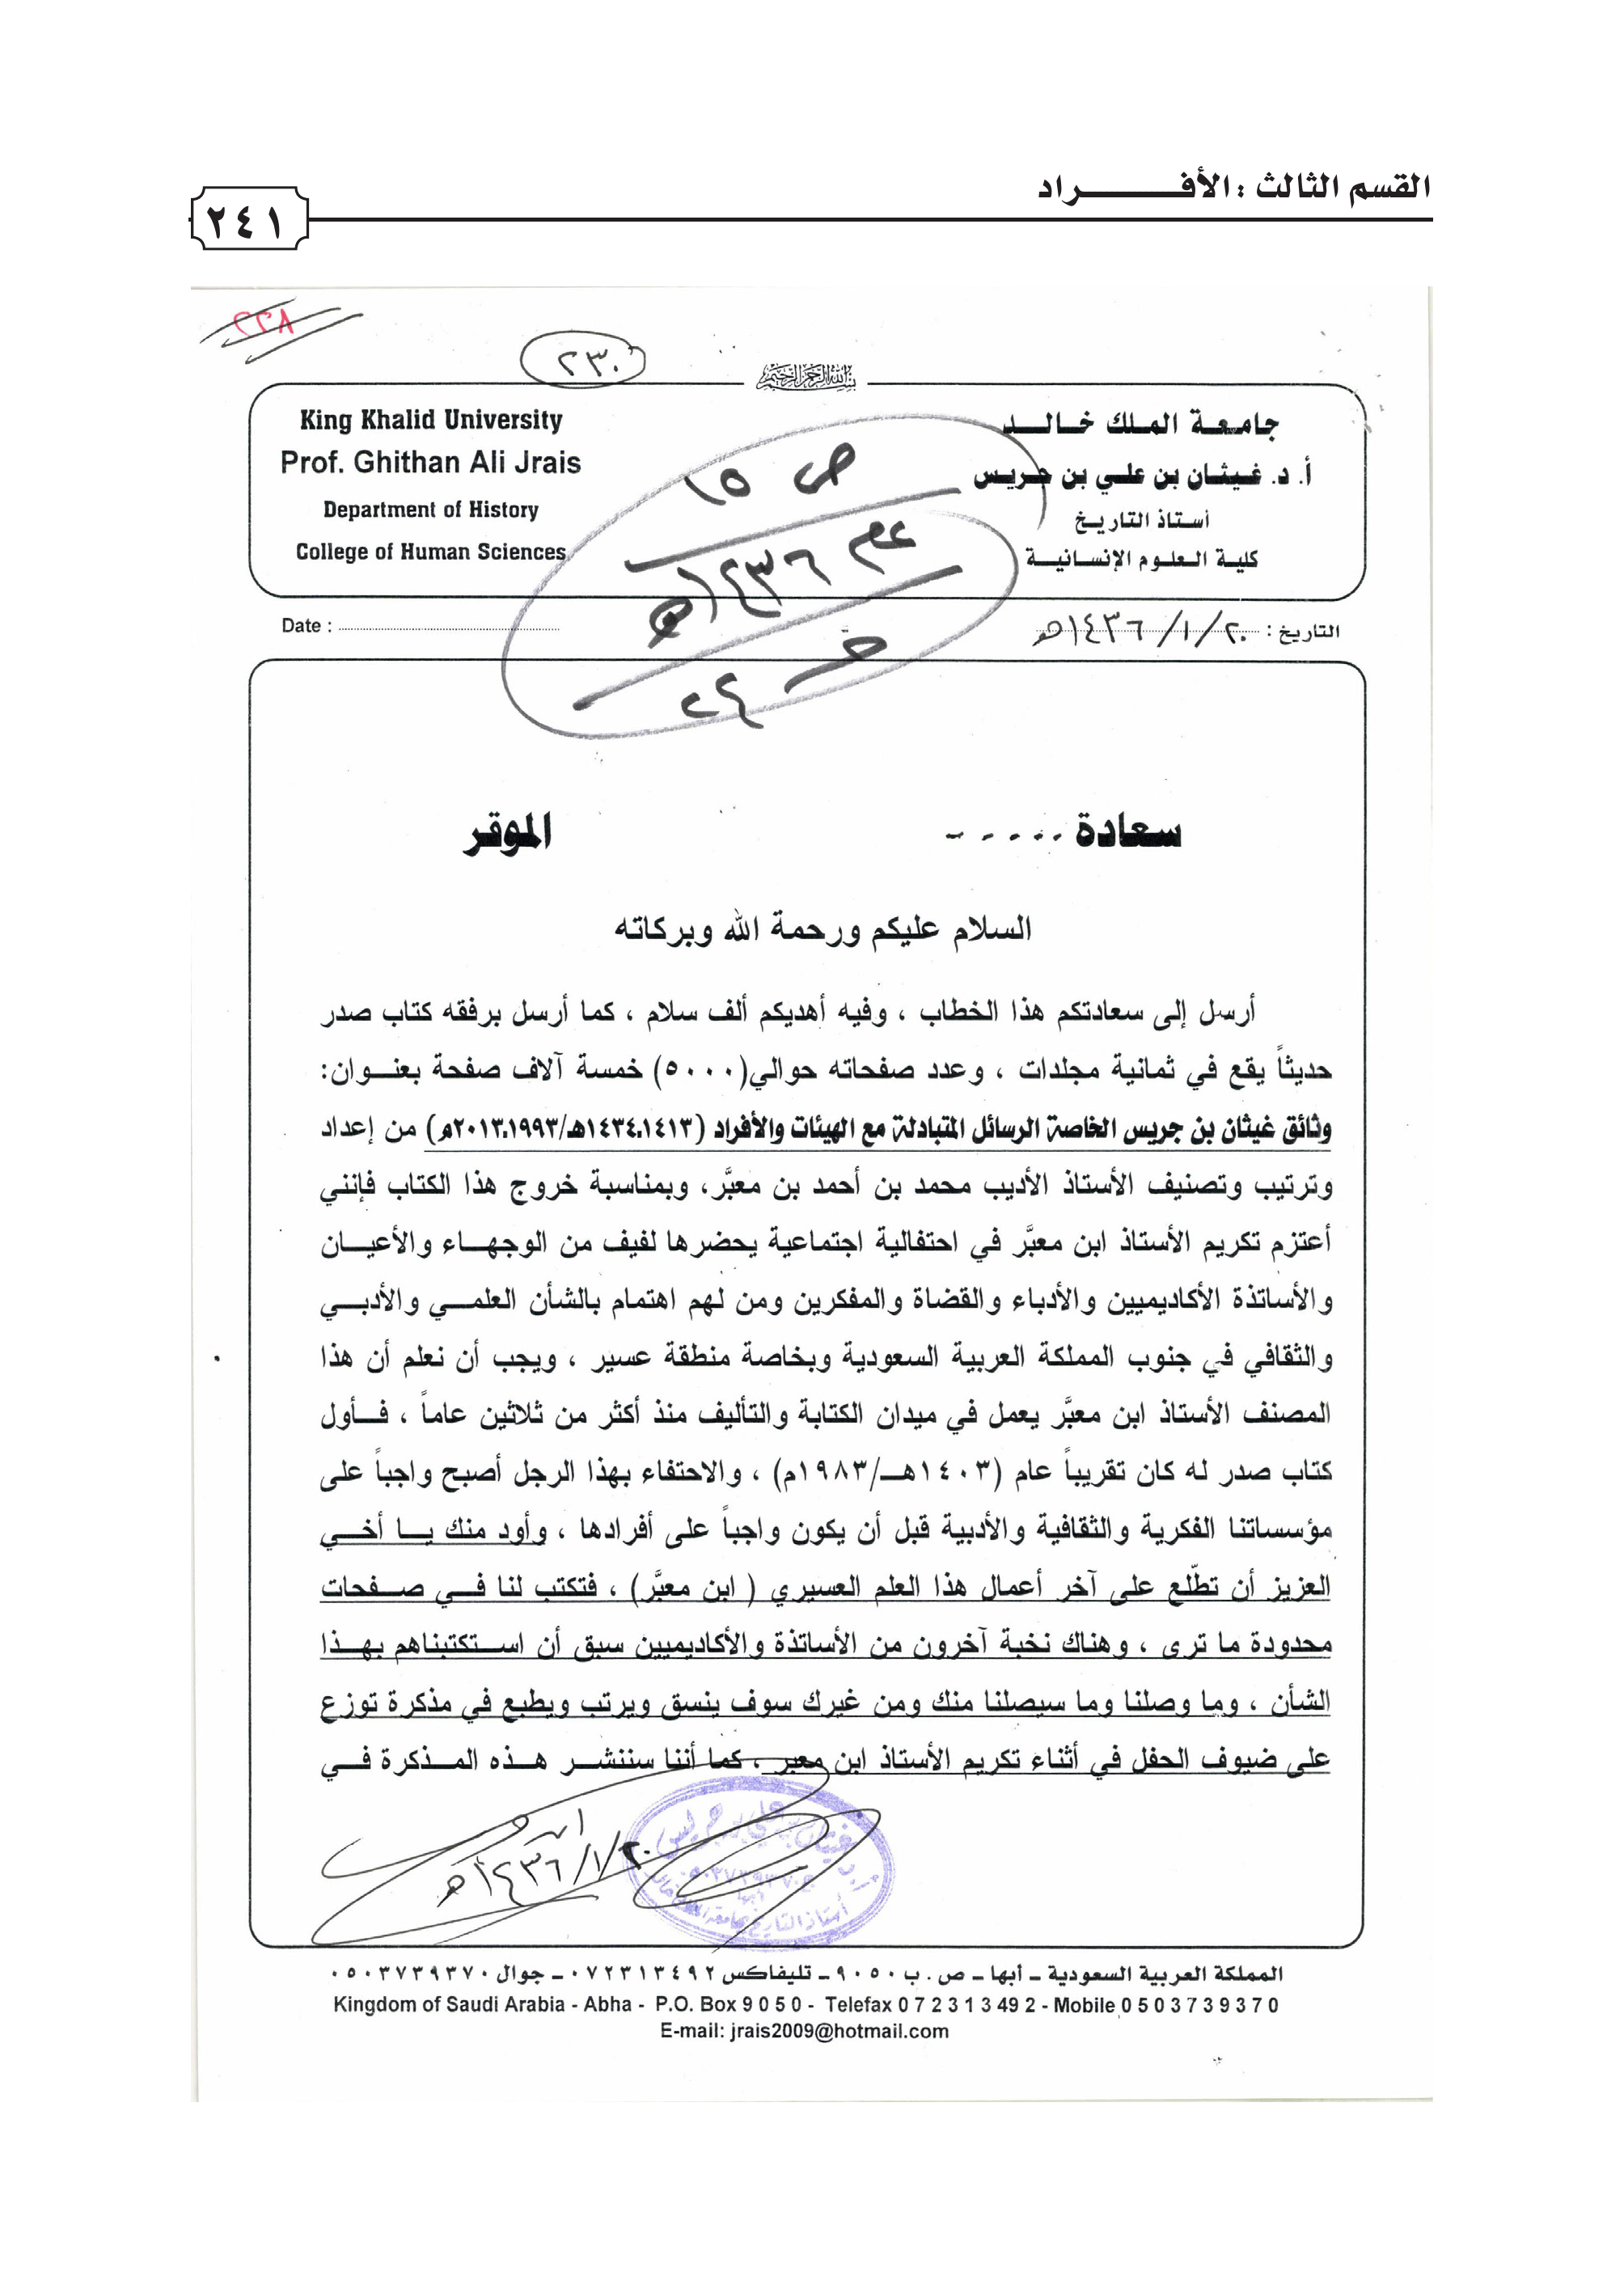 القسم الثالث : الأفــــــــراد
٢٤١
٢٢٨
٢٣٠
بسم الله الرحمن الرحيم
جامعة الملك خالد
أ. د. غيثان بن علي بن جريس
أستاذ التاريخ
كلية العلوم الإنسانية
King Khalid University
Prof. Ghithan Ali Jrais
Department of History
College of Human Sciences
ص ١٥
عام ١٤٣٦هـ
حـ ٢٤
التاريخ : ٢٠/ ١/ ١٤٣٦هـ
Date :
سعادة ..... الموقر
السلام عليكم ورحمة الله وبركاته
أرسل إلى سعادتكم هذا الخطاب ، وفيه أهديكم ألف سلام ، كما أرسل برفقه كتاب صدر
حديثاً يقع في ثمانية مجلدات ، وعدد صفحاته حوالي(٥٠٠٠) خمسة آلاف صفحة بعنـوان:
وثائق غيثان بن جريس الخاصة الرسائل المتبادلة مع الهيئات والأفراد (١٤٣٤.١٤١٣هـ/٢٠١٣.١٩٩٣م) من إعداد
وترتيب وتصنيف الأستاذ الأديب محمد بن أحمد بن معبَّر، وبمناسبة خروج هذا الكتاب فإنني
أعتزم تكريم الأستاذ ابن معبَّر في احتفالية اجتماعية يحضرها لفيف من الوجهـاء والأعيـان
والأساتذة الأكاديميين والأدباء والقضاة والمفكرين ومن لهم اهتمام بالشأن العلمـي والأدبـي
والثقافي في جنوب المملكة العربية السعودية وبخاصة منطقة عسير ، ويجب أن نعلم أن هذا
المصنف الأستاذ ابن معبَّر يعمل في ميدان الكتابة والتأليف منذ أكثر من ثلاثين عاماً ، فـأول
كتاب صدر له كان تقريباً عام (١٤٠٣هـ/١٩٨٣م) ، والاحتفاء بهذا الرجل أصبح واجباً على
مؤسساتنا الفكرية والثقافية والأدبية قبل أن يكون واجباً على أفرادها ، وأود منك يـا أخـي
العزيز أن تطّلع على آخر أعمال هذا العلم العسيري ( ابن معبَّر) ، فتكتب لنا فـي صـفحات
محدودة ما ترى ، وهناك نخبة آخرون من الأساتذة والأكاديميين سبق أن استكتبناهم بهـذا
الشأن ، وما وصلنا وما سيصلنا منك ومن غيرك سوف ينسق ويرتب ويطبع في مذكرة توزع
على ضيوف الحفل في أثناء تكريم الأستاذ ابن معبر ، كما أننا سننشـر هـذه المـذكرة فـي
٢٠/١/١٤٣٦هـ
المملكة العربية السعودية ـ أبها ـ ص. ب ٩٠٥٠ ـ تليفاكس ٠٧٢٣١٣٤٩٢ ـ جوال ٠٥٠٣٧٣٩٣٧٠
Kingdom of Saudi Arabia - Abha - P.O. Box 9 0 5 0 - Telefax 0 7 2 3 1 3 49 2 - Mobile 0 5 0 3 7 3 9 3 7 0
E-mail: jrais2009@hotmail.com